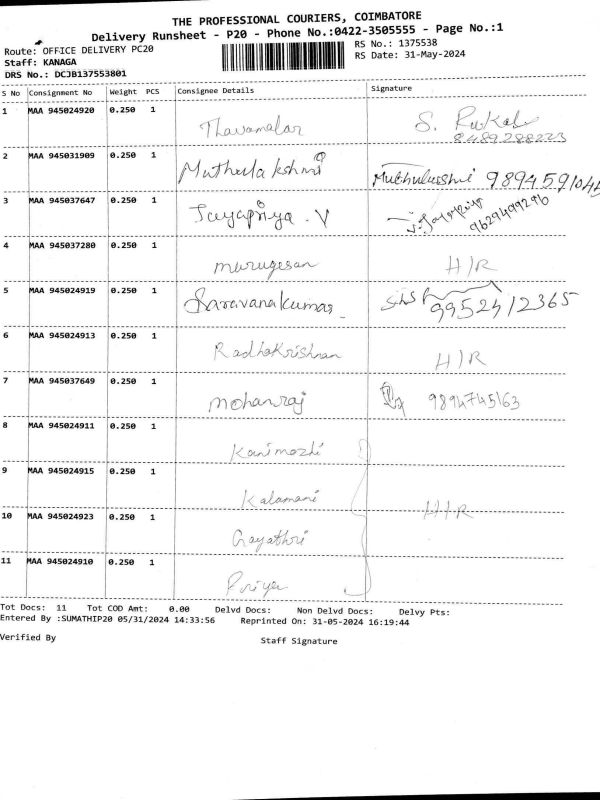 THE PROFESSIONAL COURIERS, COIMBATORE
Delivery Runsheet - P20 - Phone No.:0422-3505555 - Page No.:1
Route: OFFICE DELIVERY PC20
RS No.: 1375538
Staff: KANAGA
RS Date: 31-May-2024
DRS No.: DCJB137553801
S No Consignment No Weight PCS Consignee Details Signature
1 MAA 945024920 0.250 1 Thavamalar S.
8489288223
2 MAA 945031909 0.250 1 Muthulakshmi Muthulakshmi 9894591044
3 MAA 945037647 0.250 1 Jayapriya . V 9629499296
4 MAA 945037280 0.250 1 murugesan H/R
5 MAA 945024919 0.250 1 Saravanakumar 9952412365
6 MAA 945024913 0.250 1 Radhakrishnan H/R
7 MAA 945037649 0.250 1 mohanraj 9894745163
8 MAA 945024911 0.250 1 Kanimozhi
9 MAA 945024915 0.250 1 Kalamani
H/R
10 MAA 945024923 0.250 1 Gayathri
11 MAA 945024910 0.250 1 Priya
Tot Docs: 11 Tot COD Amt: 0.00 Delvd Docs: Non Delvd Docs: Delvy Pts:
Entered By :SUMATHIP20 05/31/2024 14:33:56 Reprinted On: 31-05-2024 16:19:44
Verified By Staff Signature